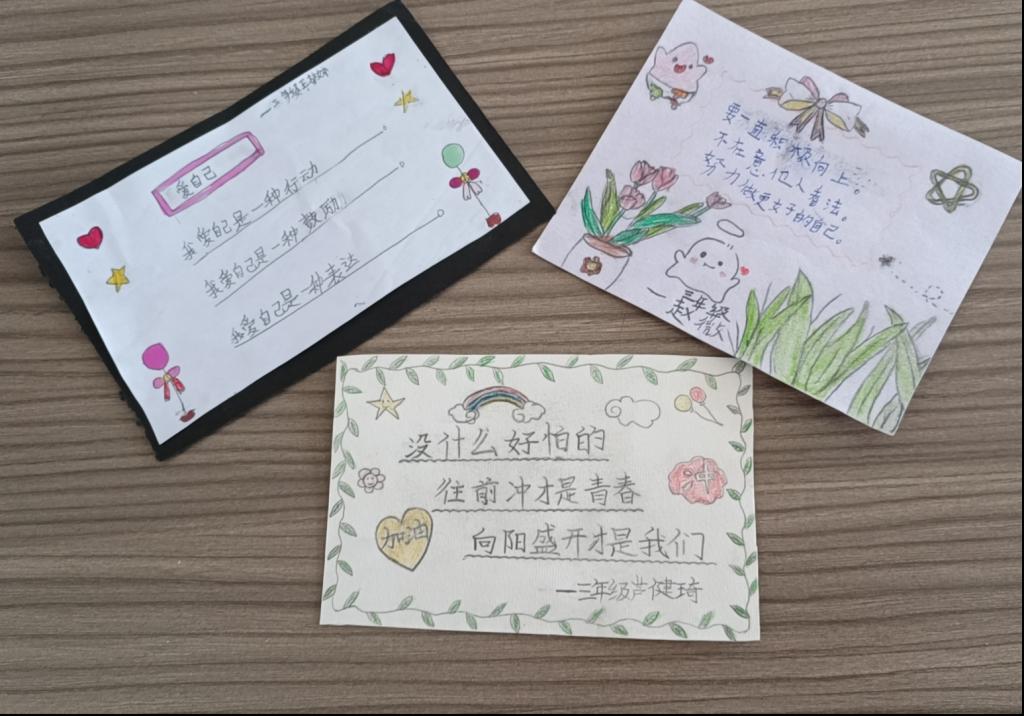 爱自己
我爱自己是一种行动
我爱自己是一种鼓励
我爱自己是一种表达
要一直积极向上。
不在意他人看法。
努力做更好的自己。
—三年级
赵
没什么好怕的
往前冲才是青春
冲
加油
向阳盛开才是我们
—三年级芦健琦